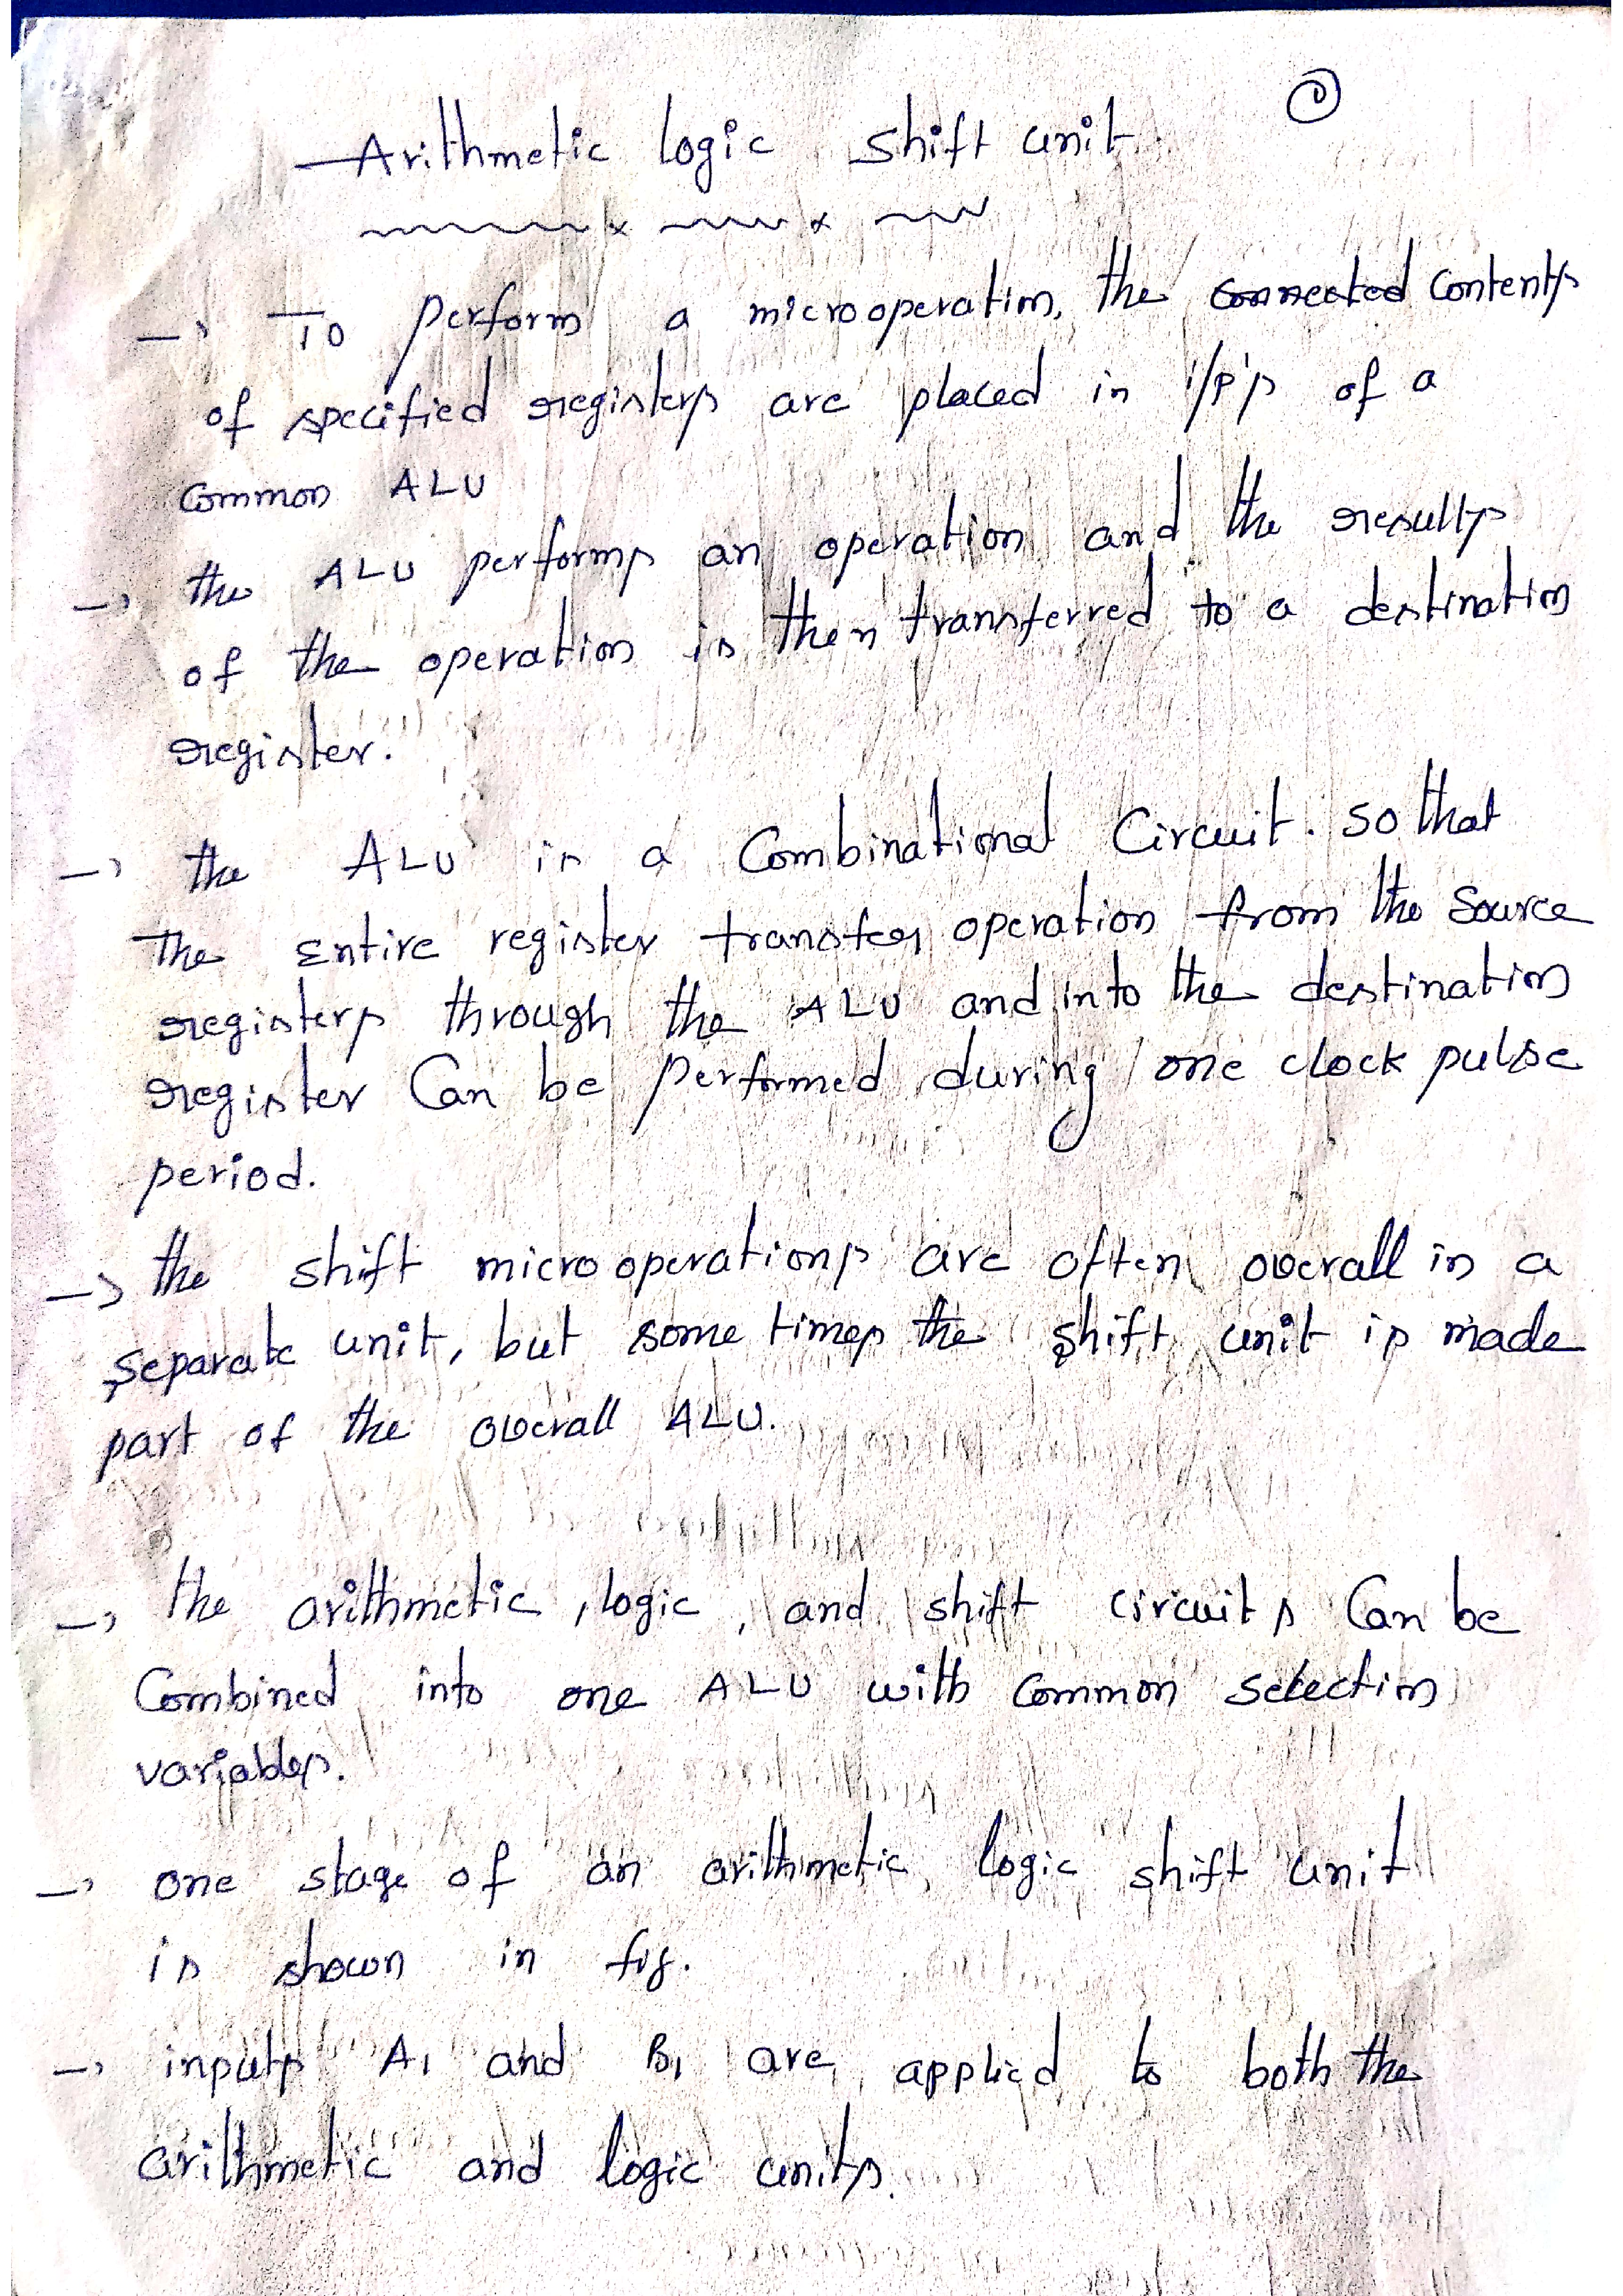 Arithmetic logic shift unit
→ To perform a microoperation, the connected contents
of specified registers are placed in i/p's of a
common ALU
→ the ALU performs an operation and the results
of the operation is then transferred to a destination
register.
→ the ALU is a Combinational Circuit. so that
The Entire register transfer operation from the Source
registers through the ALU and into the destination
register Can be performed during one clock pulse
period.
→ the shift microoperations are often overall in a
separate unit, but some times the shift unit is made
part of the overall ALU.
→ the arithmetic, logic, and shift circuits Can be
Combined into one ALU with Common selection
variables.
→ one stage of an arithmetic logic shift unit
is shown in fig.
→ inputs A1 and B1 are applied to both the
arithmetic and logic units.